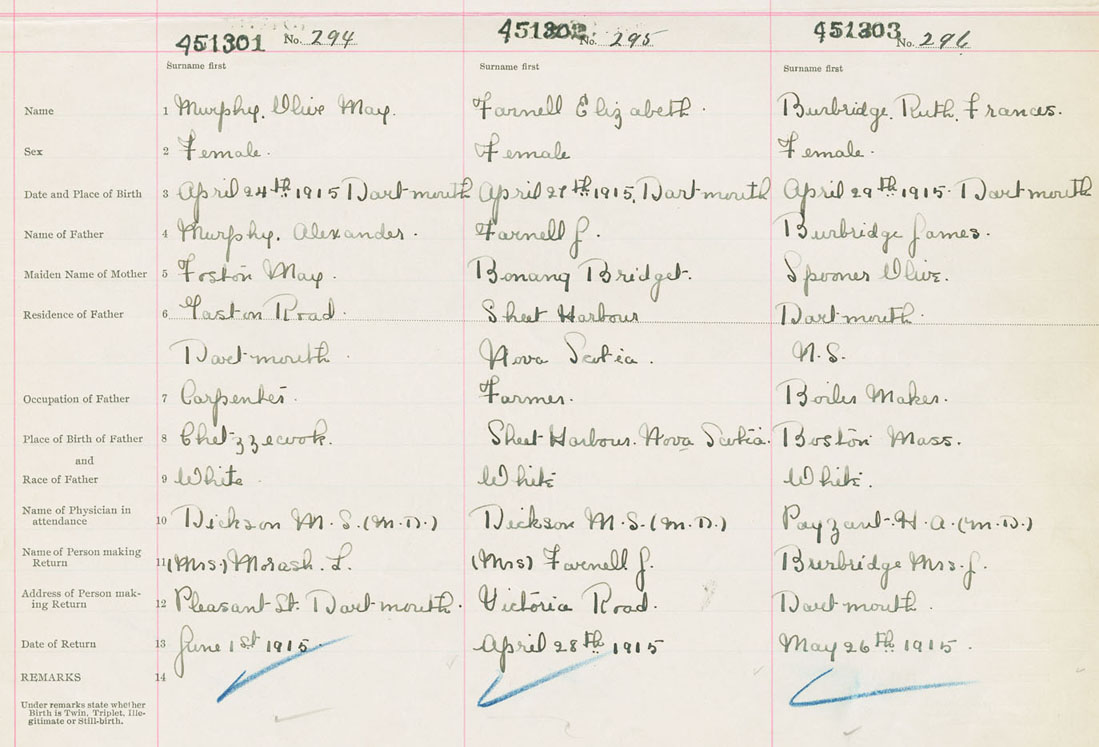 451301 No. 294 451302 No. 295 451303 No. 296
Surname first Surname first Surname first
Name 1 Murphy. Olive May. Farnell Elizabeth. Burbridge, Ruth, Frances.
Sex 2 Female. Female Female.
Date and Place of Birth 3 April 24th 1915 Dartmouth April 27th 1915, Dartmouth April 29th 1915. Dartmouth
Name of Father 4 Murphy, Alexander. Farnell J. Burbridge James.
Maiden Name of Mother 5 Foston May. Bonang Bridget. Spooner Olive.
Residence of Father 6 Gaston Road. Sheet Harbour Dartmouth.
Dartmouth. Nova Scotia. N.S.
Occupation of Father 7 Carpenter. Farmer. Boiler Maker.
Place of Birth of Father 8 Chetzzecook. Sheet Harbour. Nova Scotia. Boston Mass.
and
Race of Father 9 White. White White.
Name of Physician in
attendance 10 Dickson M.S. (M.D.) Dickson M.S. (M.D.) Payzant. H.A. (M.D.)
Name of Person making
Return 11 (Mrs.) Morash. L. (Mrs) Farnell J. Burbridge Mrs. J.
Address of Person mak-
ing Return 12 Pleasant St. Dartmouth. Victoria Road. Dartmouth.
Date of Return 13 June 1st 1915. April 28th 1915 May 26th 1915.
REMARKS 14
Under remarks state whether
Birth is Twin, Triplet, Ille-
gitimate or Still-birth.